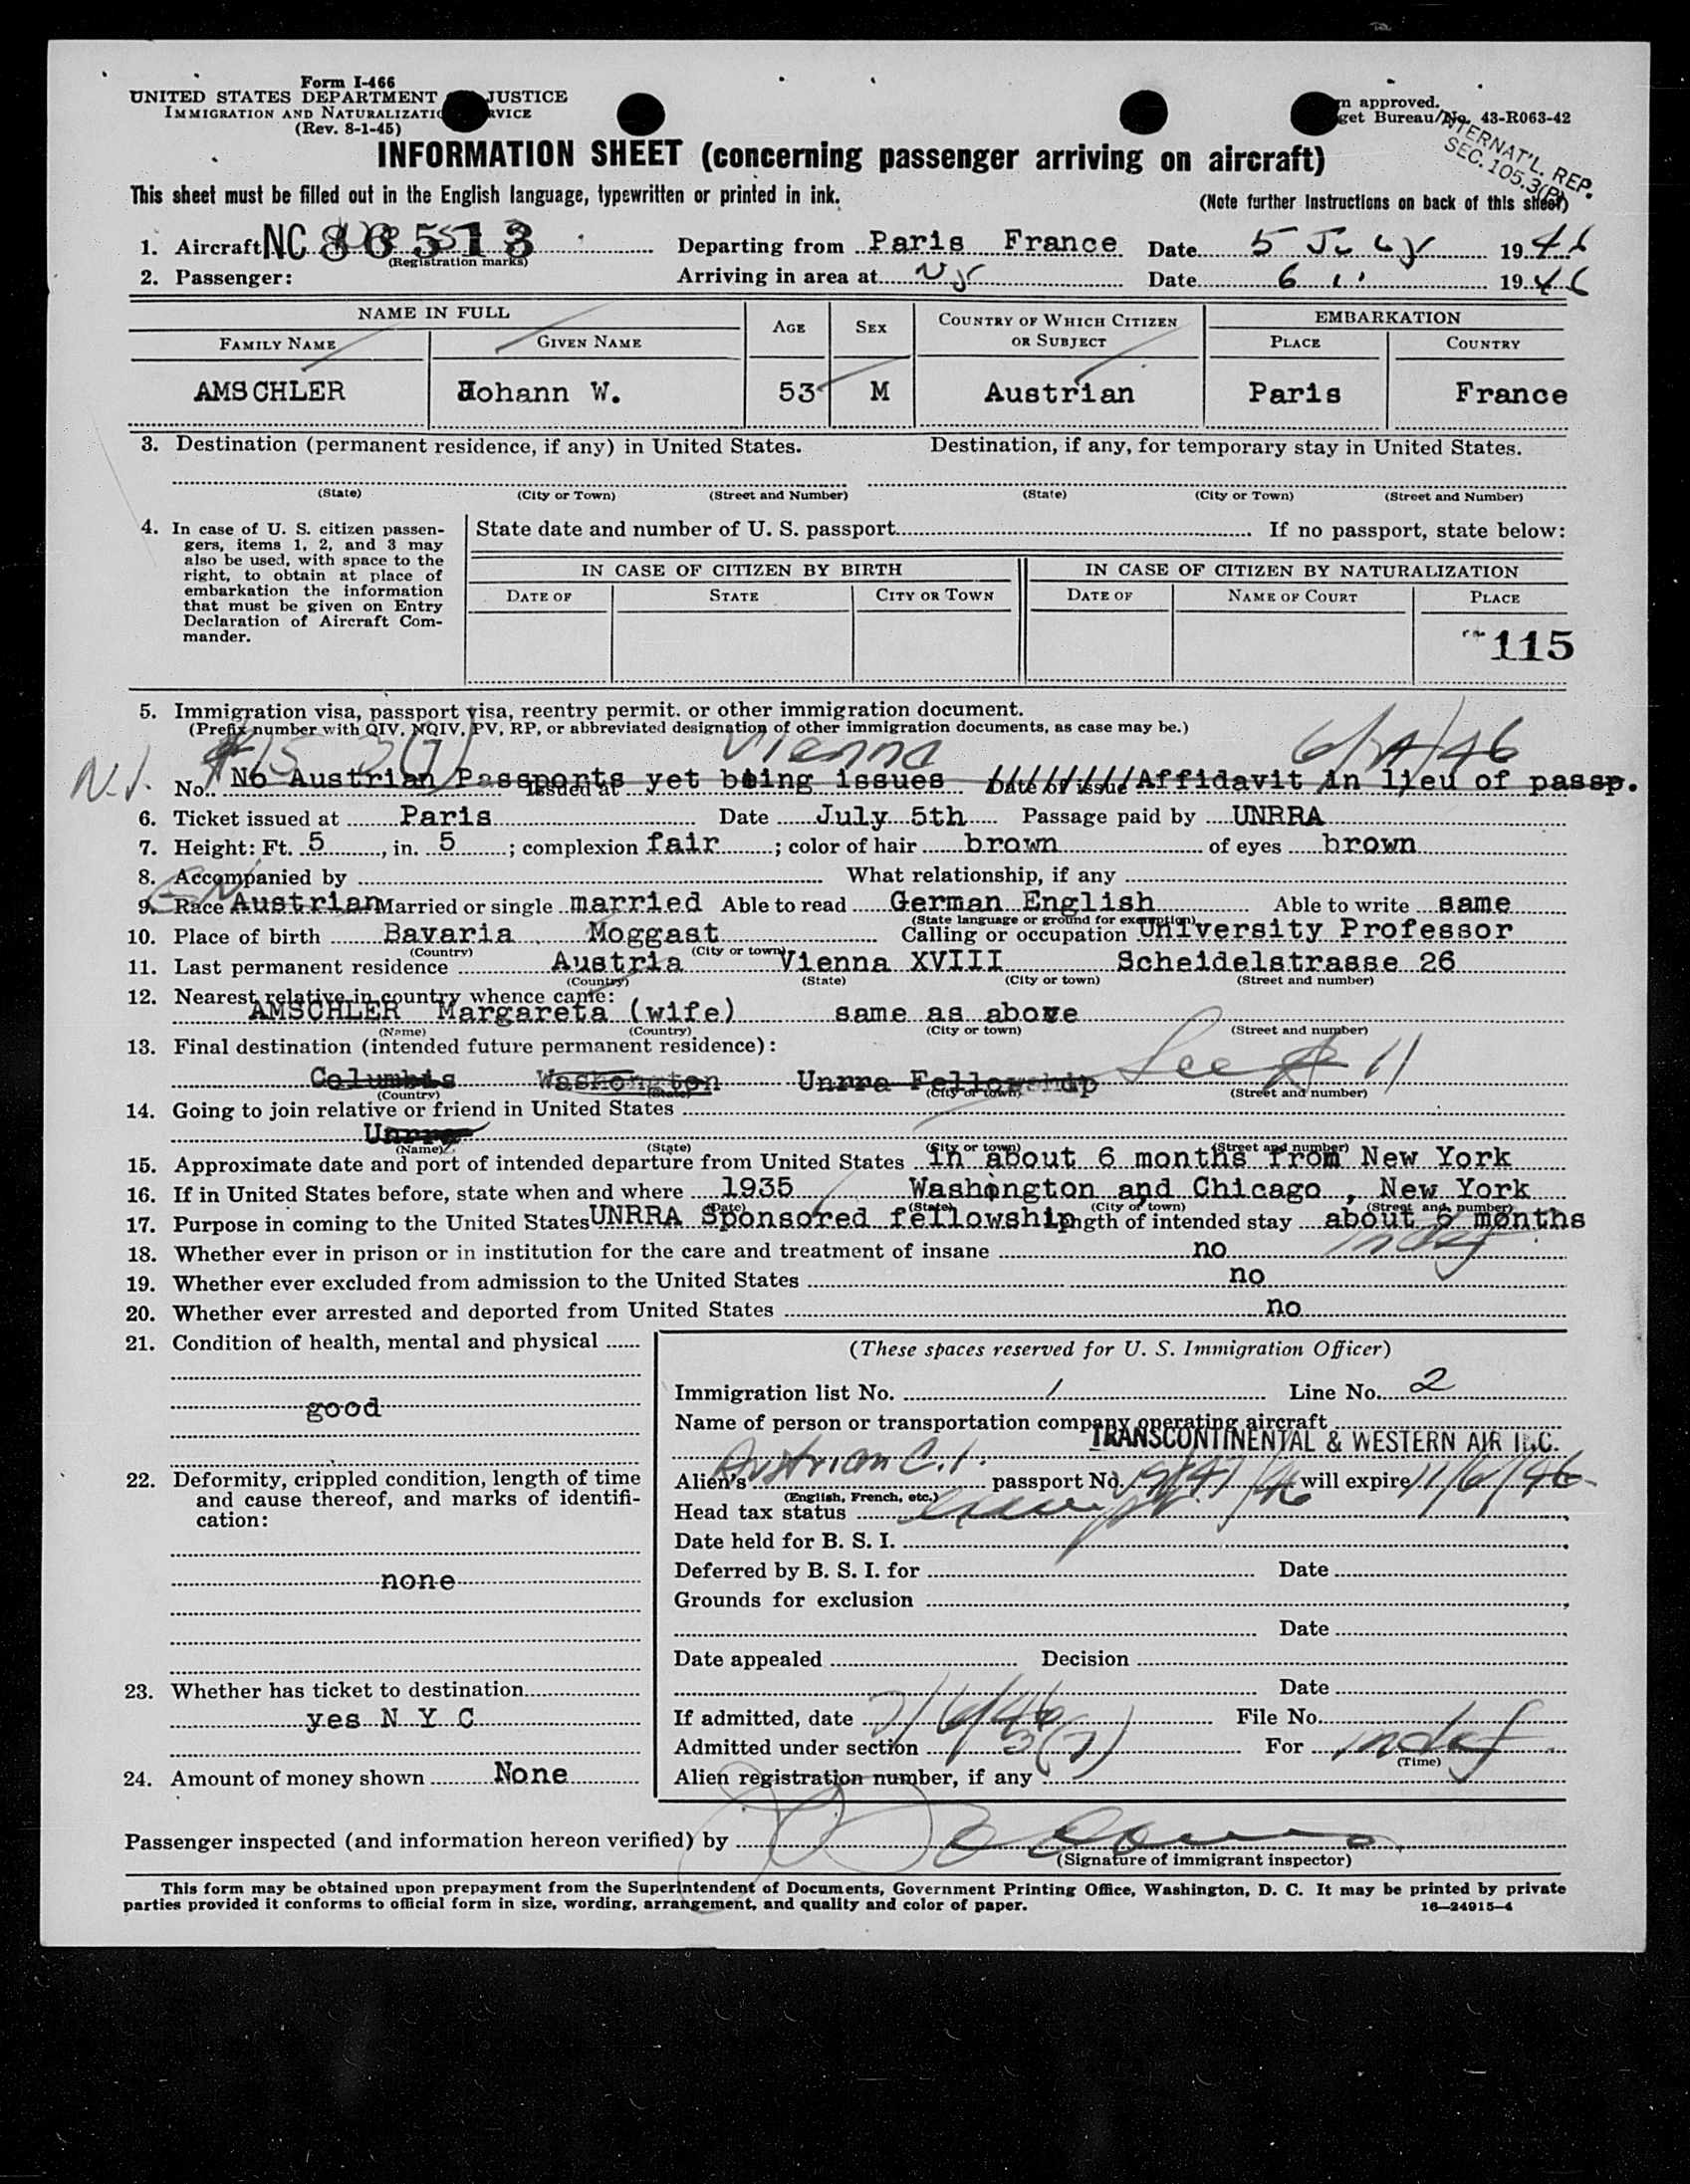 Form I-466
UNITED STATES DEPARTMENT JUSTICE
IMMIGRATION AND
(Rev. 8-1-45)
approved.
Bureau No. 43-R063-42
INTERNAT'L. REP.
SEC. 105.3
INFORMATION SHEET (concerning passenger arriving on aircraft)
This sheet must be filled out in the English language, typewritten or printed in ink.
(Note further instructions on back of this sheet)
1. Aircraft NC 86513 Departing from Paris France Date 5 July 1946
(Registration marks)
2. Passenger: Arriving in area at NY Date 6 '' 1946
NAME IN FULL AGE SEX COUNTRY OF WHICH CITIZEN OR SUBJECT EMBARKATION
FAMILY NAME GIVEN NAME PLACE COUNTRY
AMSCHLER Johann W. 53 M Austrian Paris France
3. Destination (permanent residence, if any) in United States. Destination, if any, for temporary stay in United States.
(State) (City or Town) (Street and Number) (State) (City or Town) (Street and Number)
4. In case of U. S. citizen passen-
gers, items 1, 2, and 3 may
also be used, with space to the
right, to obtain at place of
embarkation the information
that must be given on Entry
Declaration of Aircraft Com-
mander.
State date and number of U. S. passport If no passport, state below:
IN CASE OF CITIZEN BY BIRTH IN CASE OF CITIZEN BY NATURALIZATION
DATE OF STATE CITY OR TOWN DATE OF NAME OF COURT PLACE
115
5. Immigration visa, passport visa, reentry permit. or other immigration document.
(Prefix number with QIV, NQIV, PV, RP, or abbreviated designation of other immigration documents, as case may be.)
3(7) Vienna
No. No Austrian Passports yet being issues Date of issue Affidavit in lieu of passp.
Issued at
6. Ticket issued at Paris Date July 5th Passage paid by UNRRA
7. Height: Ft. 5, in. 5; complexion fair; color of hair brown of eyes brown
8. Accompanied by What relationship, if any
9. Race Austrian Married or single married Able to read German English Able to write same
(State language or ground for exemption)
10. Place of birth Bavaria Moggast Calling or occupation University Professor
(Country) (City or town)
11. Last permanent residence Austria Vienna XVIII Scheidelstrasse 26
(Country) (State) (City or town) (Street and number)
12. Nearest relative in country whence came:
AMSCHLER Margareta (wife) same as above
(Name) (Country) (City or town) (Street and number)
13. Final destination (intended future permanent residence):
Columbis Washongton Unrra Fellowship See # 11
(Country) (State) (City or town) (Street and number)
14. Going to join relative or friend in United States
Unrra
(Name) (State) (City or town) (Street and number)
15. Approximate date and port of intended departure from United States in about 6 months from New York
16. If in United States before, state when and where 1935 Washington and Chicago , New York
(Date) (State) (City or town) (Street and number)
17. Purpose in coming to the United States UNRRA Sponsored fellowship Length of intended stay about 6 months
indef
18. Whether ever in prison or in institution for the care and treatment of insane no
19. Whether ever excluded from admission to the United States no
20. Whether ever arrested and deported from United States no
21. Condition of health, mental and physical
good
22. Deformity, crippled condition, length of time
and cause thereof, and marks of identifi-
cation:
none
23. Whether has ticket to destination
yes N Y C
24. Amount of money shown None
(These spaces reserved for U. S. Immigration Officer)
Immigration list No. 1 Line No. 2
Name of person or transportation company operating aircraft
TRANSCONTINENTAL & WESTERN AIR INC.
Austrian C.I.
Alien's passport No. will expire 11/6/46
(English, French, etc.)
Head tax status
Date held for B. S. I.
Deferred by B. S. I. for Date
Grounds for exclusion
Date
Date appealed Decision
Date
If admitted, date 7/6/46 File No.
Admitted under section 3(7) For indef
(Time)
Alien registration number, if any
Passenger inspected (and information hereon verified) by
(Signature of immigrant inspector)
This form may be obtained upon prepayment from the Superintendent of Documents, Government Printing Office, Washington, D. C. It may be printed by private
parties provided it conforms to official form in size, wording, arrangement, and quality and color of paper.
16—24915-4